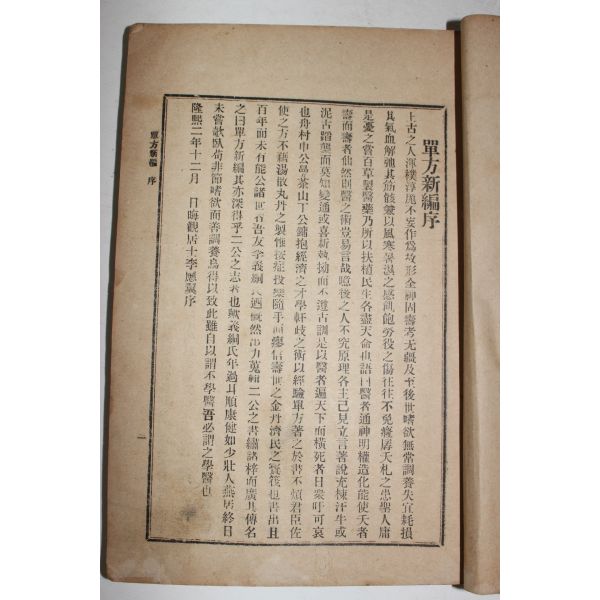 單方新編序
上古之人渾樸淳庬不妄作爲故形全神固壽考无疆及至後世嗜欲無常調養失宜耗損
其氣血解弛其筋骸襲以風寒暑濕之感飢飽勞役之傷往往不免癃㞃夭札之患聖人庸
是憂之嘗百草製醫藥乃所以扶植民生各盡天命也語曰醫者通神明權造化能使夭者
壽而壽者仙然則醫之術豈易言哉噫後之人不究原理各主己見立言著說充棟汗牛或
泥古蹈襲而莫知變通或喜新執拗而不遵古訓是以醫者遍天下而橫死者日衆吁可哀
也舟村申公曼茶山丁公鏞抱經濟之才學軒歧之術以經驗單方著之於書不煩君臣佐
使之方不藉湯散丸丹之製惟按症投藥隨手而瘳信壽世之金丹濟民之寶筏也書出且
百年而未有能公諸世者吾友李義絅氏迺慨然出力蒐輯二公之書繡諸梓而廣其傳名
之曰單方新編其亦深得乎二公之志者也歟義絅氏年過耳順康健如少壯人燕居終日
未嘗欹臥苟非節嗜欲而善調養烏得以致此雖自以謂不學醫吾必謂之學醫也
隆熙二年十二月 日晦觀居士李應翼序
單方新編 序
一